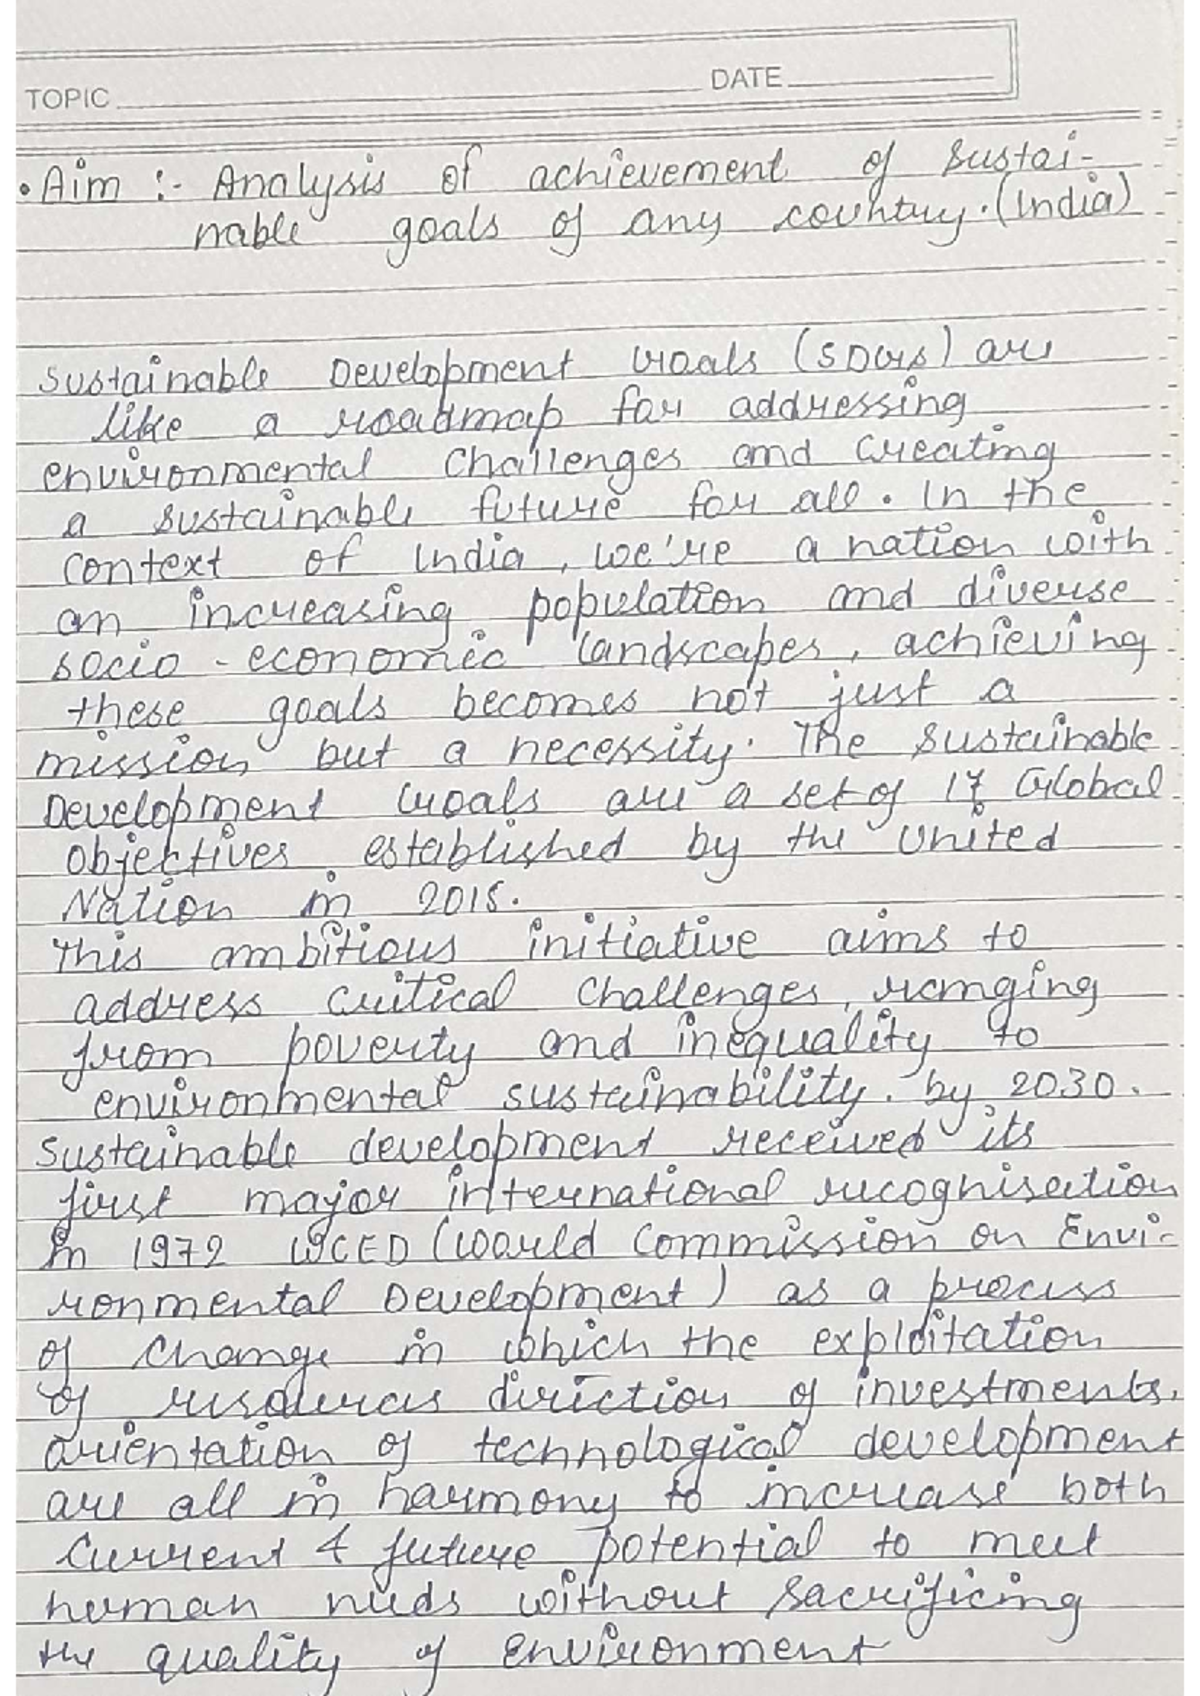 TOPIC DATE
• Aim :- Analysis of achievement of sustai-
nable goals of any country. (India)
Sustainable Development Goals (SDGs) are
like a roadmap for addressing
environmental challenges and creating
a sustainable future for all. In the
context of India, we're a nation with
an increasing population and diverse
socio-economic landscapes, achieving
these goals becomes not just a
mission but a necessity. The Sustainable
Development Goals are a set of 17 Global
Objectives established by the United
Nation in 2015.
This ambitious initiative aims to
address critical challenges, ranging
from poverty and inequality to
environmental sustainability. by 2030.
Sustainable development received its
first major international recognisation
in 1972 WCED (World Commission on Envi-
ronmental Development) as a process
of change in which the exploitation
of resources direction of investments,
orientation of technological development
are all in harmony to increase both
current & future potential to meet
human needs without sacrificing
the quality of environment